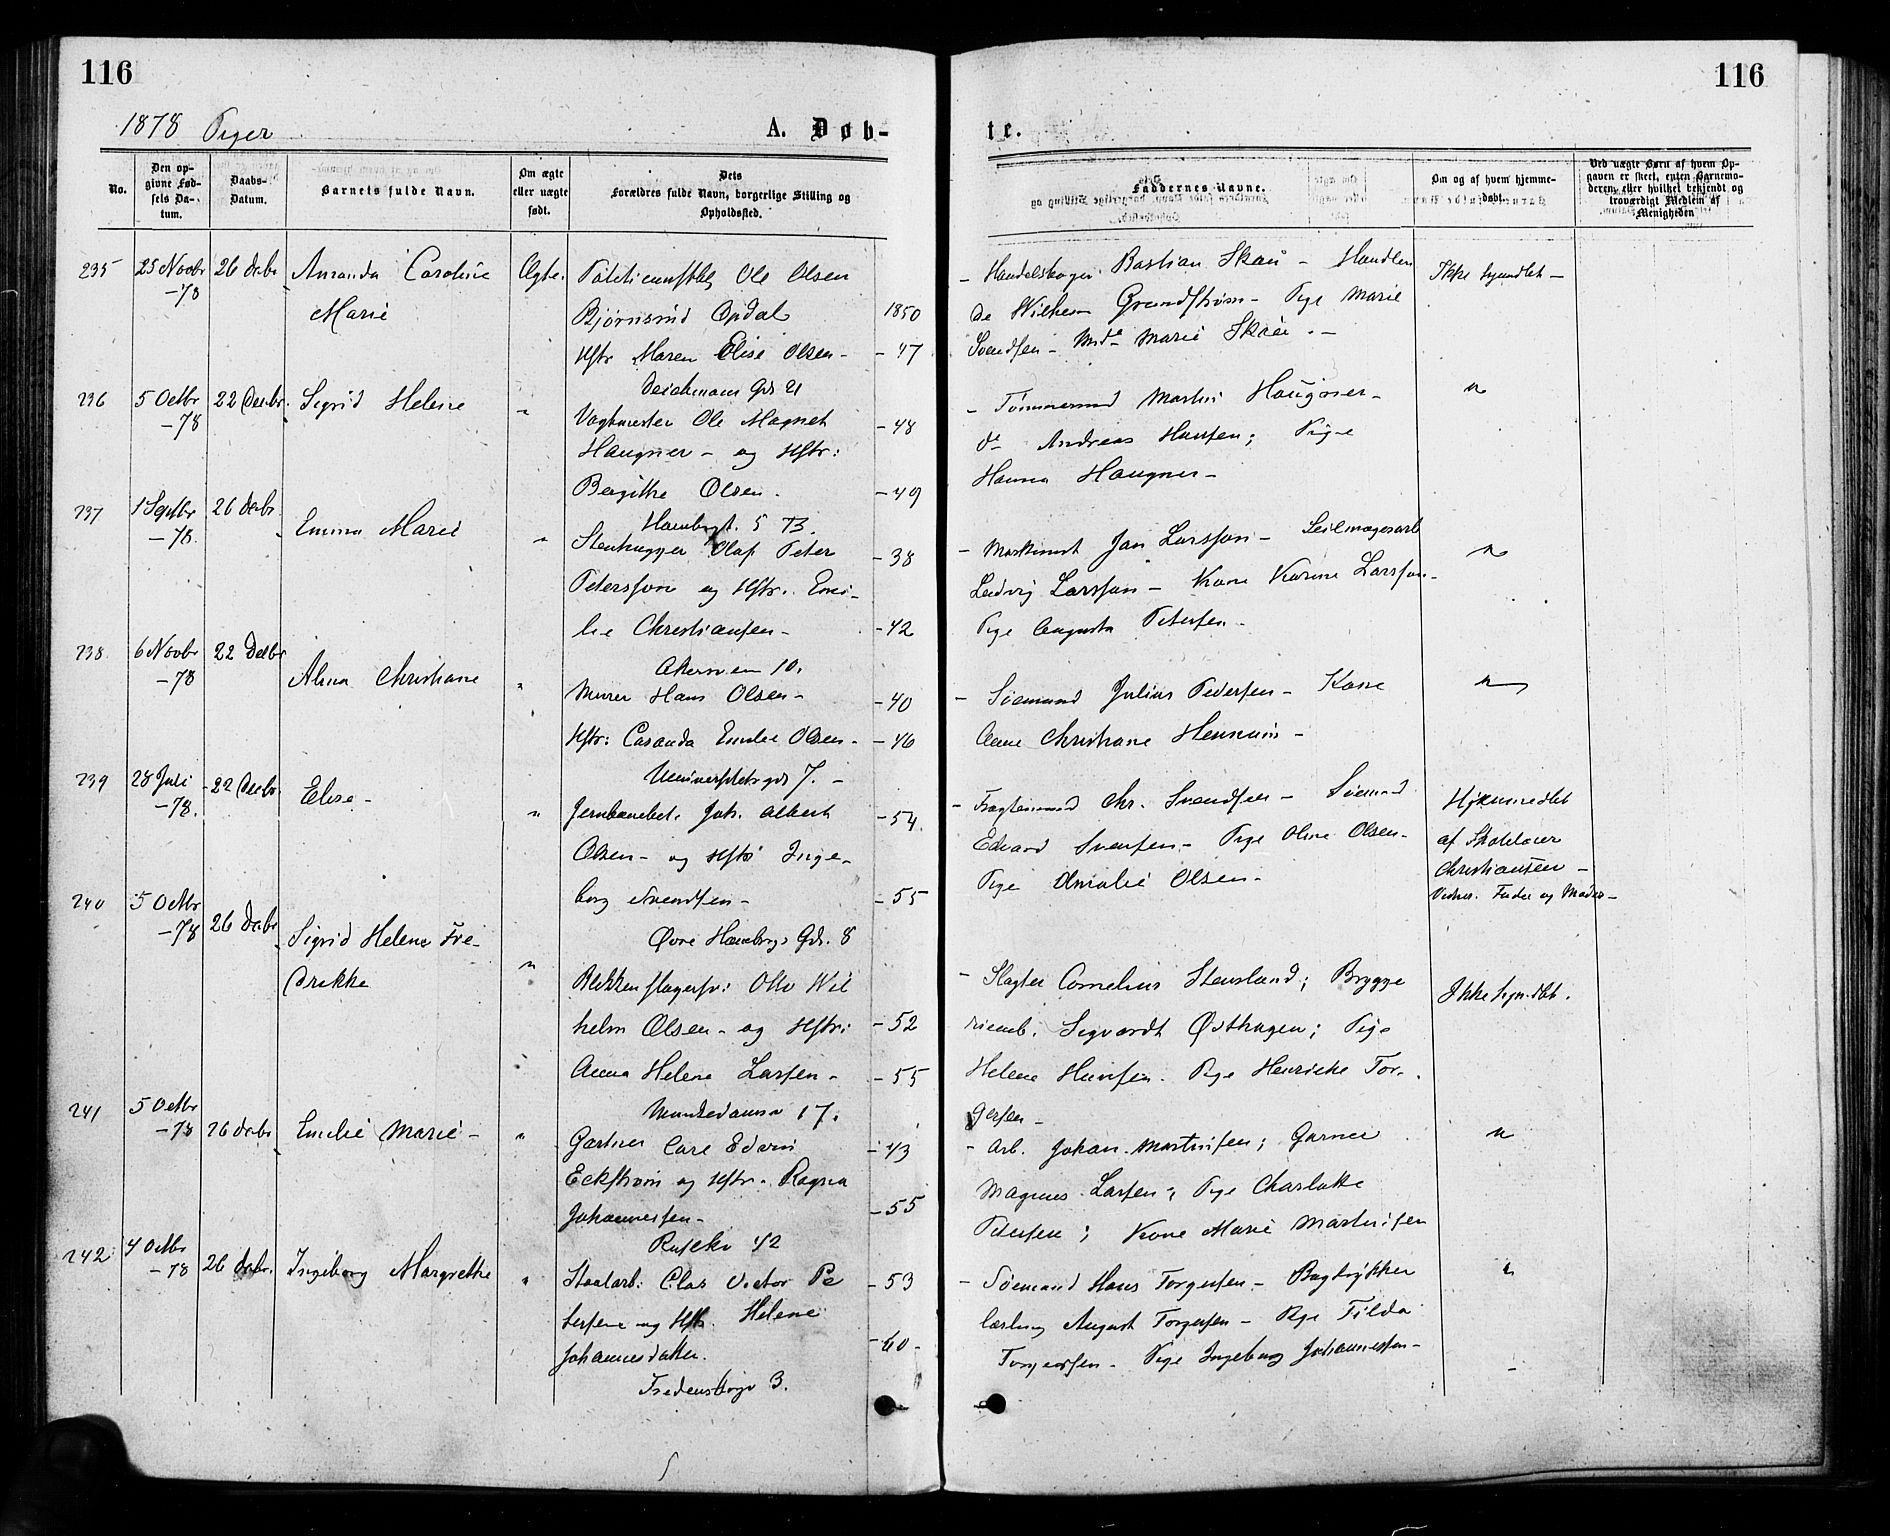 116
116
1878 Piger
A. Døb-
te.
No.
Den op-
givne Fød-
sels Da-
tum.
Daabs-
Datum.
Barnets fulde Navn.
Om ægte
eller uægte
født.
Dets
Forældres fulde Navn, borgerlige Stilling og
Opholdssted.
Faddernes Navne.
Om og af hvem hjemme-
døbt.
Ved uægte Børn af hvem Op-
gaven er skeet, enten Barnemo-
deren, eller hvilket bekjendt og
troværdigt Medlem af
Menigheden
235 25 Novbr 26 decbr Amanda Caroline Ægte. Ole Olsen
-78 Marie Bjørnsrud Opdal 1850
Hstr Maren Elise Olsen - -47
Deichmans Gd 21
- Bastian Skau - Handlen
de Wilhem Grundstrøm - Pige Marie
Svendsen - Md Marie Skau. -
Ikke hjemdbt -
236 5 Octbr 22 Decbr. Sigrid Helene "
-78 Vagtmester Ole Magnet -48
Haugner - og Hstr:
Bergitte Olsen. -49
Hambrgt. 5 B.
- Tømmermd Martin Haugner -
do Andreas Hansen; Pige
Hanna Haugner -
"
237 1 Septbr 26 decbr Emma Marie "
-78.
Stenhugger Olaf Peter -38
Peterssson og Hstr. Emi-
lie Christiansen - -42
Akersvei 10.
- Maskinist Jan Larsson - Seilmagerarb
Ludvig Larsson - Kone Karine Larsson -
Pige Augusta Petersen -
"
238. 6 Novbr 22 Decbr Alma Christiane "
-78
Murer Hans Olsen - -40
Hstr: Emilie Olsen. -46
Universitetsgd 7. -
- Sømand Julius Pedersen - Kone
Anne Christiane Hennum -
"
239 28 Juli -22 Decbr. Elise - "
-78.
Jernbanebet. Joh. Albert -54.
Olsen - og Hstr Inge-
borg Svendsen - -55
Øvre Hambrgs Gd. 8
- Chr. Svendsen - Sømand
Edvard Svensen - Pige Oline Olsen -
Pige Amalie Olsen -
Hjemmedbt
af Skolelærer
Christiansen -
Vidner. Fader og Moder -
240 5 Octbr 26 Decbr Sigrid Helene Fre-
-78 drikke "
Blikkenslagersv: Otto Wil
helm Olsen - og Hstr: -52
Anna Helene Larsen - -55
Munkedamsv 17.
- Slagter Cornelius Stensland; Brygge
rieneb. Sigvardt Østhagen; Pige
Helene Hansen. Pige Henrikke Tor-
gersen -
Ikke hjemdbt.
241 5 Octbr 26 decbr Emilie Marie - "
-78
Gartner Carl Edvin -43
Eckstrøm og Hstr. Ragna
Johannesen - -55
Ruseløv 42
- Arb. Johan Martinsen; Garver
Magnus Larsen; Pige Charlotte
Petersen; Kone Marie Martinsen
"
242 4 Octbr 26 decbr. Ingeborg Margrethe "
-78
Clas Victor Pe -53
tersen og Hstr. Helene
Johannesdatter. -60 -
Fredensborgv 3.
- Sømand Hans Torgersen - Bogtrykker
lærling August Torgersen - Pige Tilda
Torgersen - Pige Ingeborg Johannessen -
"